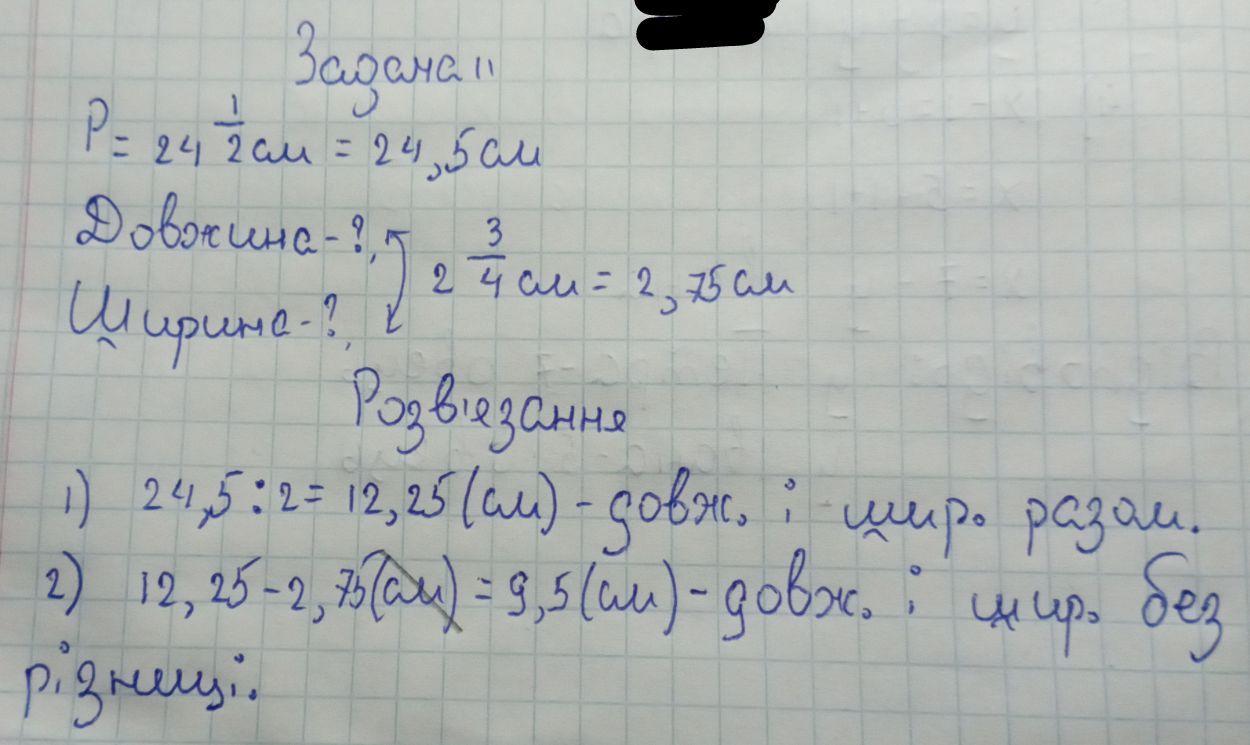 Задача 11
P = 24 1/2 см = 24,5 см
Довжина - ?,
2 3/4 см = 2,75 см
Ширина - ?,
Розв'язання
1) 24,5 : 2 = 12,25 (см) - довж. і шир. разом.
2) 12,25 - 2,75 (см) = 9,5 (см) - довж. і шир. без
різниці.